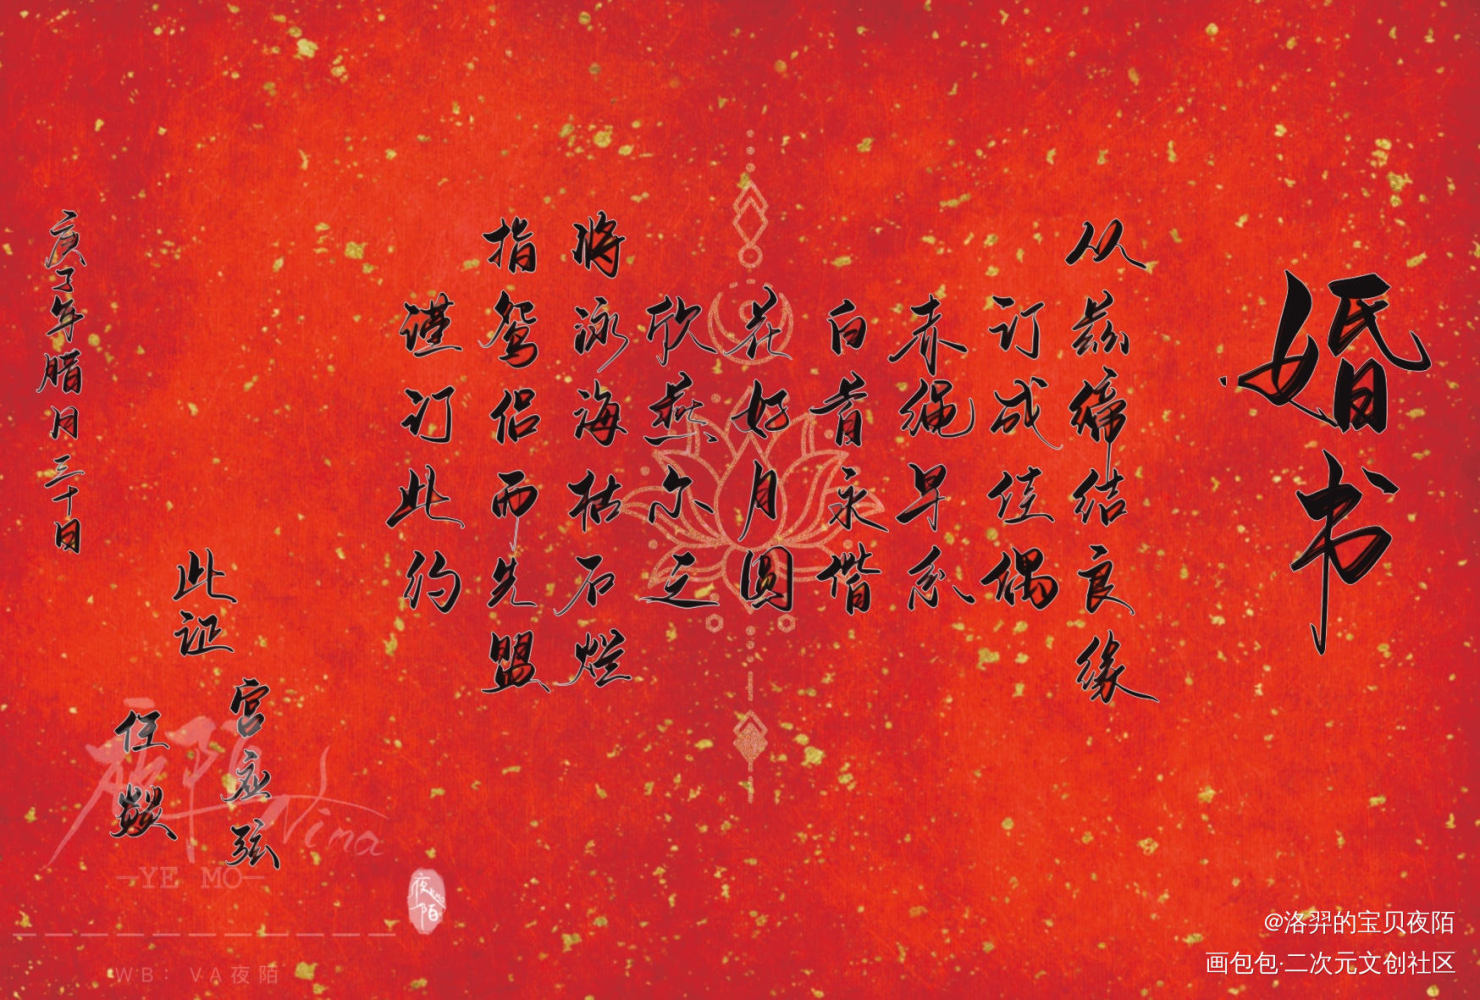 婚书
从兹缔结良缘
订成佳偶
赤绳早系
白首永偕
花好月圆
欣燕尔之
将泳海枯石烂
指鸳侣而先盟
谨订此约
此证
宫应弦
任燚
庚子年腊月三十日
夜陌
Nima
—YE MO—
夜陌
WB：VA夜陌
@洛羿的宝贝夜陌
画包包·二次元文创社区